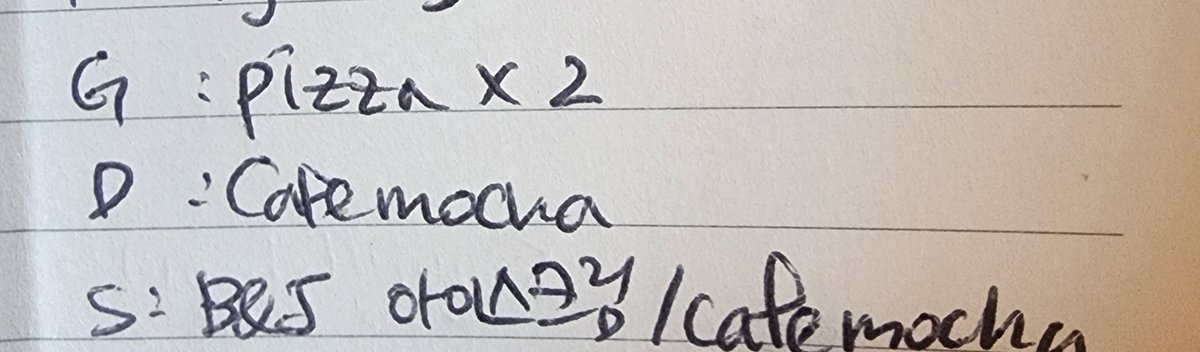 G : pizza x 2
D : Cafemocha
S: B&J 아이스크림 / cafemocha